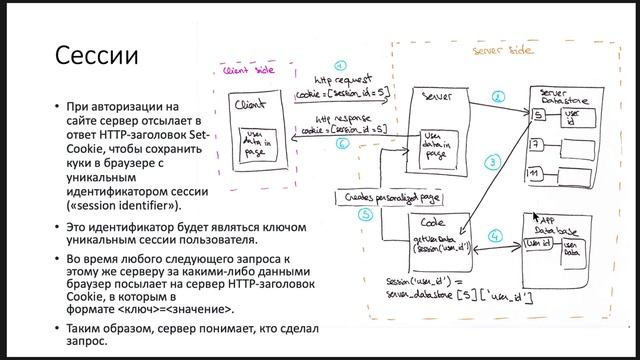 Сессии
• При авторизации на
сайте сервер отсылает в
ответ HTTP-заголовок Set-
Cookie, чтобы сохранить
куки в браузере с
уникальным
идентификатором сессии
(«session identifier»).
• Это идентификатор будет являться ключом
уникальным сессии пользователя.
• Во время любого следующего запроса к
этому же серверу за какими-либо данными
браузер посылает на сервер HTTP-заголовок
Cookie, в котором в
формате <ключ>=<значение>.
• Таким образом, сервер понимает, кто сделал
запрос.
Client side
Server side
1
Http request
cookie = [session_id = 5]
Client
user
data in
page
Http response
cookie = [session_id = 5]
6
Server
user
data in
page
2
Server
Datastore
5
user
id
7
11
3
Creates personalized page
5
Code
getUserData
(session['user_id'])
4
APP
Database
user id
user
Data
session('user_id') =
server_datastore [5]['user_id']